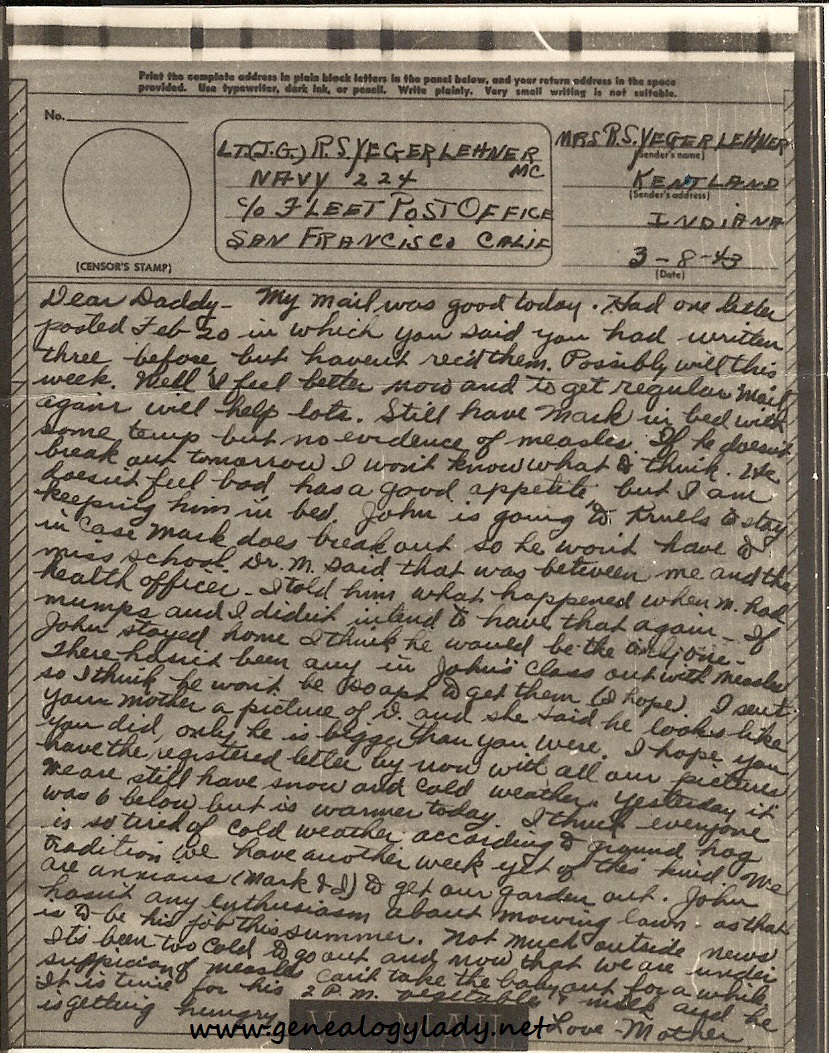 Print the complete address in plain block letters in the panel below, and your return address in the space
provided. Use typewriter, dark ink, or pencil. Write plainly. Very small writing is not suitable.
No.
(CENSOR'S STAMP)
LT.(J.G.) R.S. YEGERLEHNER
MC
NAVY 224
c/o FLEET POST OFFICE
SAN FRANCISCO CALIF
MRS R.S. YEGERLEHNER
(Sender's name)
KENTLAND
(Sender's address)
INDIANA
3-8-43
(Date)
Dear Daddy- My mail was good today. Had one letter
posted Feb 20 in which you said you had written
three before but havent rec'd them. Possibly will this
week. Well I feel better now and to get regular mail
again will help lots. Still have Mark in bed with
some temp but no evidence of measles. If he doesn't
break out tomorrow I won't know what to think. He
doesn't feel bad has a good appetite, but I am
keeping him in bed. John is going to Krulls to stay
in case Mark does break out so he won't have to
miss school. Dr. M. said that was between me and the
health officer - I told him what happened when M. had
mumps and I didn't intend to have that again - If
John stayed home I think he would be the only one -
There hasn't been any in John's class out with measles
so I think he won't be so apt to get them (I hope) I sent
your mother a picture of D. and she said he looks like
you did, only he is bigger than you were. I hope you
have the registered letter by now with all our pictures
We are still have snow and cold weather. Yesterday it
was 6 below but is warmer today. I think everyone
is so tired of cold weather according to ground hog
tradition we have another week yet of this kind We
are anxious (Mark & I) to get our garden out. John
hasn't any enthusiasm about mowing lawn - as that
is to be his job this summer. Not much outside news
It's been too cold to go out and now that we are under
suspicion of measles can't take the baby out for a while
It is time for his 2 P.M. vegetable & milk and he
is getting hungry Love - Mother
V - MAIL
www.genealogylady.net